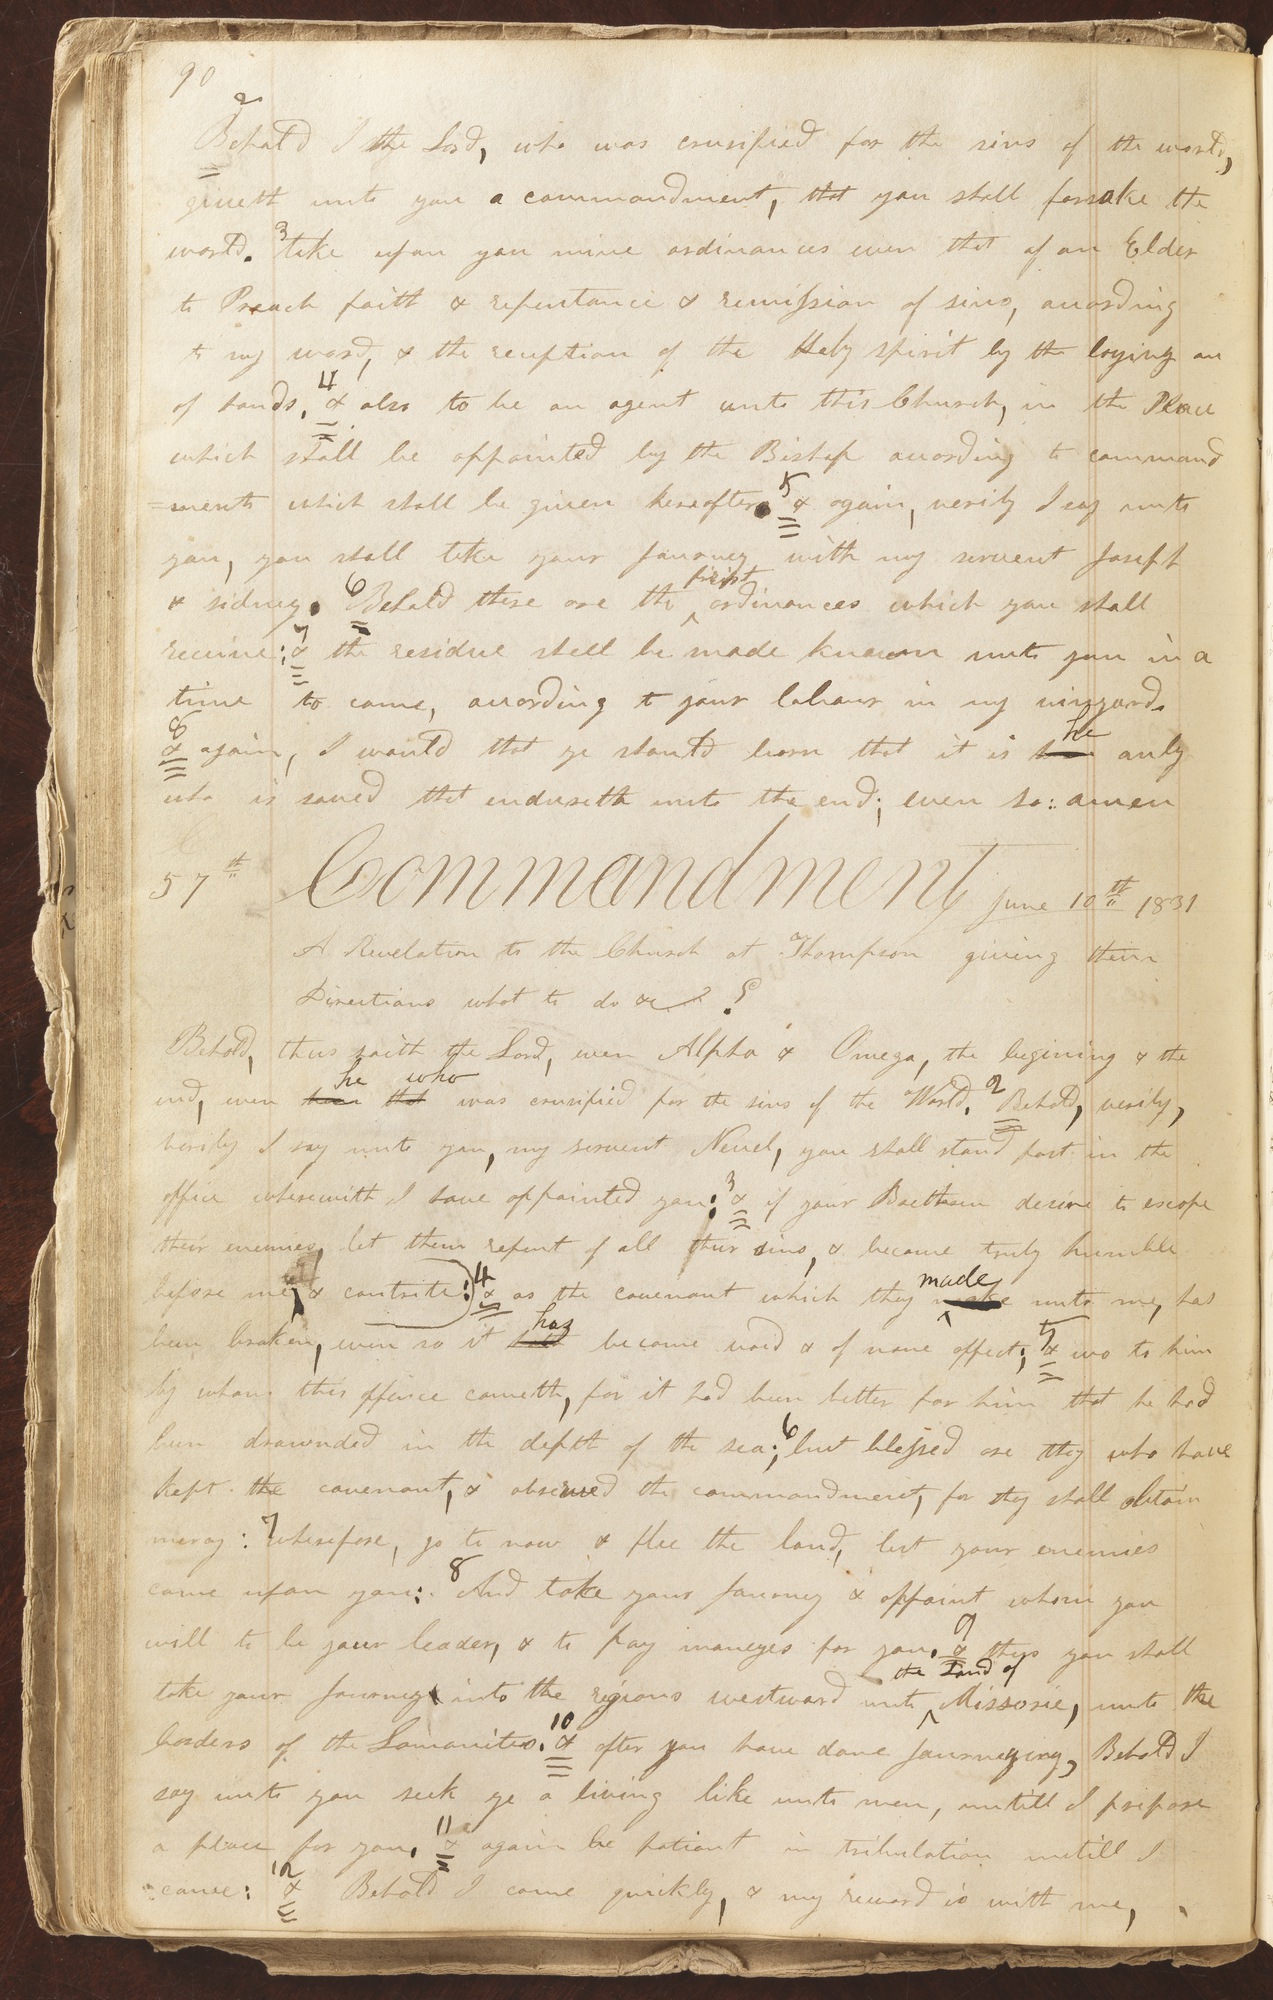 90
2
Behold I the Lord, who was crusified for the sins of the world,
giveth unto you a commandment, that you shall forsake the
world. 3 take upon you mine ordinances even that of an Elder
to Preach faith & repentance & remission of sins, according
to my word, & the reception of the Holy spirit by the laying on
of hands, 4 & also to be an agent unto this Church, in the Place
which shall be appointed by the Bishop according to command
=ments which shall be given hereafter. 5 & again, verily I say unto
you, you shall take your Journey with my servent Joseph
first
& sidney. 6 Behold these are the ^ ordinances which you shall
receive: 7 & the residue shall be made known unto you in a
time to come, according to your labour in my vinyard.
8 he
& again, I would that ye should learn that it is him only
who is saved that endureth unto the end; even so: amen
57th Commandment June 10th 1831
A Revelation to the Church at Thompson giving them
Directions what to do &c ?
Behold, thus saith the Lord, even Alpha & Omega, the begining & the
he who
end, even him that was crusified for the sins of the World. 2 Behold, verily,
verily I say unto you, my servent Newel, you shall stand fast in the
office wherewith I have appointed you: 3 & if your Brethren desire to escape
their enemies, let them repent of all their sins, & become truly humble
made
before me, & contrite: 4 & as the covenant which they ^ make unto me, has
has
been broken, even so it hath become void & of none effect; 5 & wo to him
by whom this offence cometh, for it had been better for him that he had
been drawnded in the depth of the sea; 6 but blessed are they who have
kept the covenant, & observed the commandment, for they shall obtain
mercy: 7 wherefore, go to now & flee the land, lest your enemies
come upon you: 8 And take your Journey & appoint whom you
will to be your leader, & to pay moneyes for you. 9 & thus you shall
the Land of
take your Journey into the regions westward unto ^ Missorie, unto the
borders of the Lamanites. 10 & after you have done Journeying, Behold I
say unto you seek ye a living like unto men, untill I prepare
a place for you. 11 & again be patient in tribulation untill I
come: 12 & Behold I come quickly, & my reward is with me,